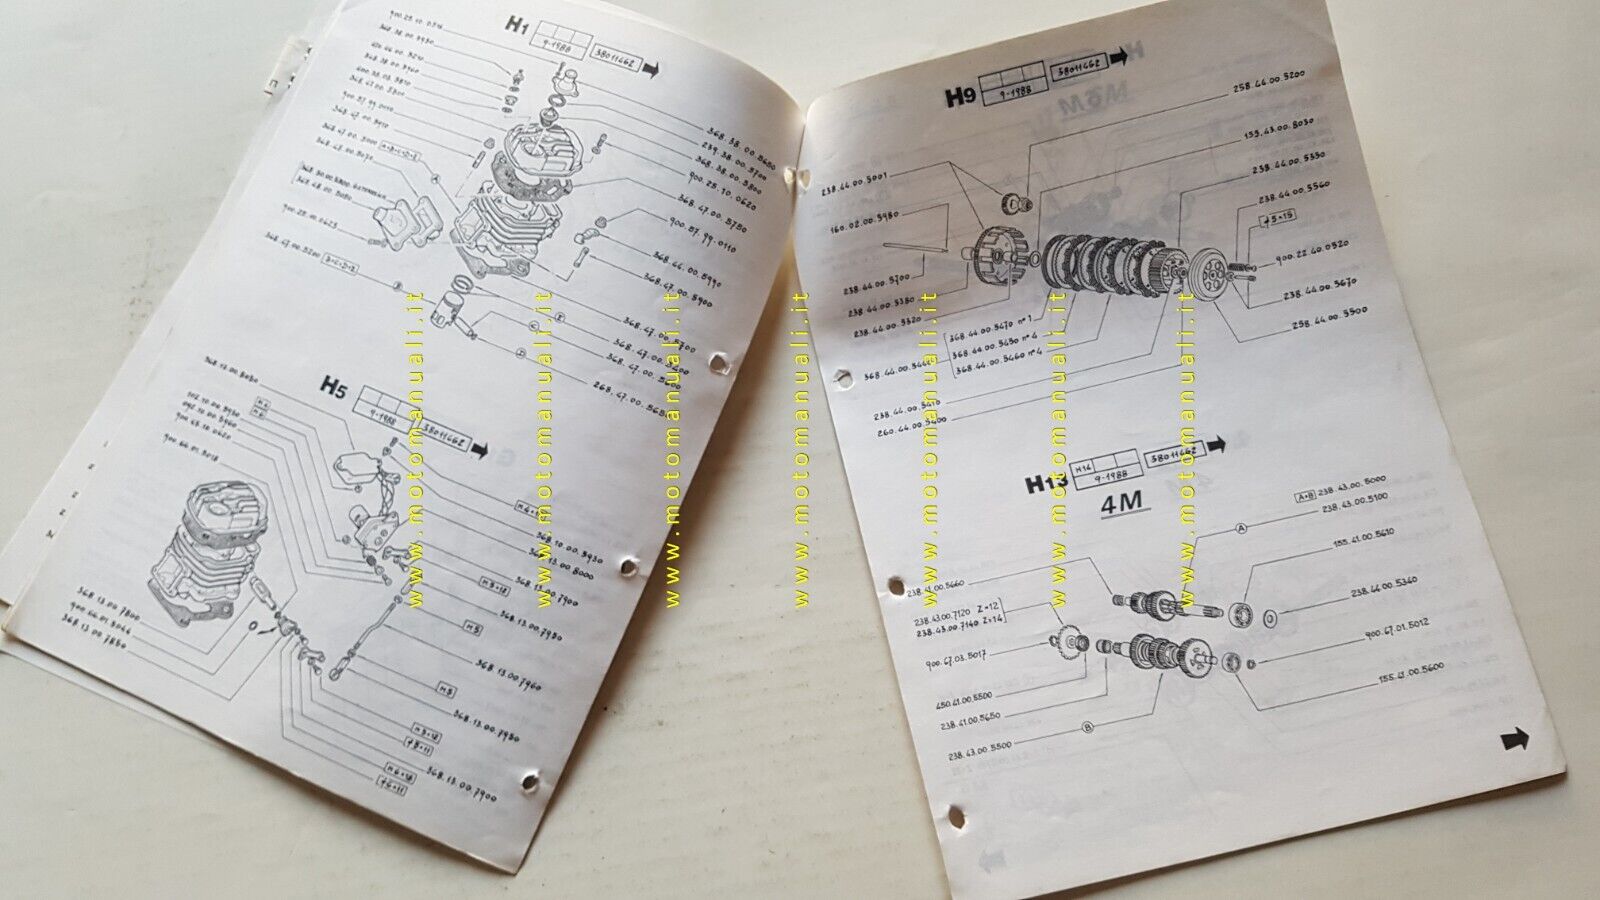 H1
9-1988
38011462
900.25.10.0514
368.38.00.5950
368.38.00.5960
400.38.03.5810
368.41.00.5800
900.57.99.0110
368.47.00.5910
368.47.00.5000 A+B+C+D+E
368.48.00.5070
368.48.00.5080
900.25.10.0625
368.47.00.5200 B+C+D+E
A
B
C
D
E
368.38.00.5650
239.38.00.5700
368.38.00.5800
900.25.10.0620
368.47.00.5750
900.57.99.0110
368.44.00.5990
368.47.00.5900
368.47.00.5700
368.47.00.5400
368.47.00.5600
268.47.00.5650
H5
9-1988
38011462
368.13.00.8050
502.10.00.5950
092.10.00.5960
900.45.10.0620
900.66.01.5018
368.13.00.7800
900.66.01.5044
368.13.00.7850
368.10.00.5930
368.13.00.8000
368.13.00.7900
M5+12
368.13.00.7950
M5
368.13.00.7960
M5
368.13.00.7950
M5+12
+5+11
368.13.00.7900
M6+12
+6+11
H9
9-1988
38011462
258.44.00.5200
155.43.00.8030
238.44.00.5350
238.44.00.5560
+5+15
900.22.40.0520
238.44.00.5670
258.44.00.5500
238.44.00.5001
160.02.00.5980
238.44.00.5700
238.44.00.5380
238.44.00.5320
368.44.00.5470 n°1
368.44.00.5450 n°4
368.44.00.5460 n°4
238.44.00.5410
260.44.00.5400
H13
H14
9-1988
38011462
4M
A+B 238.43.00.5000
238.43.00.5100
A
155.41.00.5610
238.44.00.5340
900.67.01.5012
155.41.00.5600
238.41.00.5660
238.43.00.7120 Z=12
238.43.00.7140 Z=14
900.67.03.5017
450.41.00.5500
238.41.00.5650
238.43.00.5500
B
www.motomanuali.it
www.motomanuali.it
www.motomanuali.it
www.motomanuali.it
www.motomanuali.it
www.motomanuali.it
www.motomanuali.it